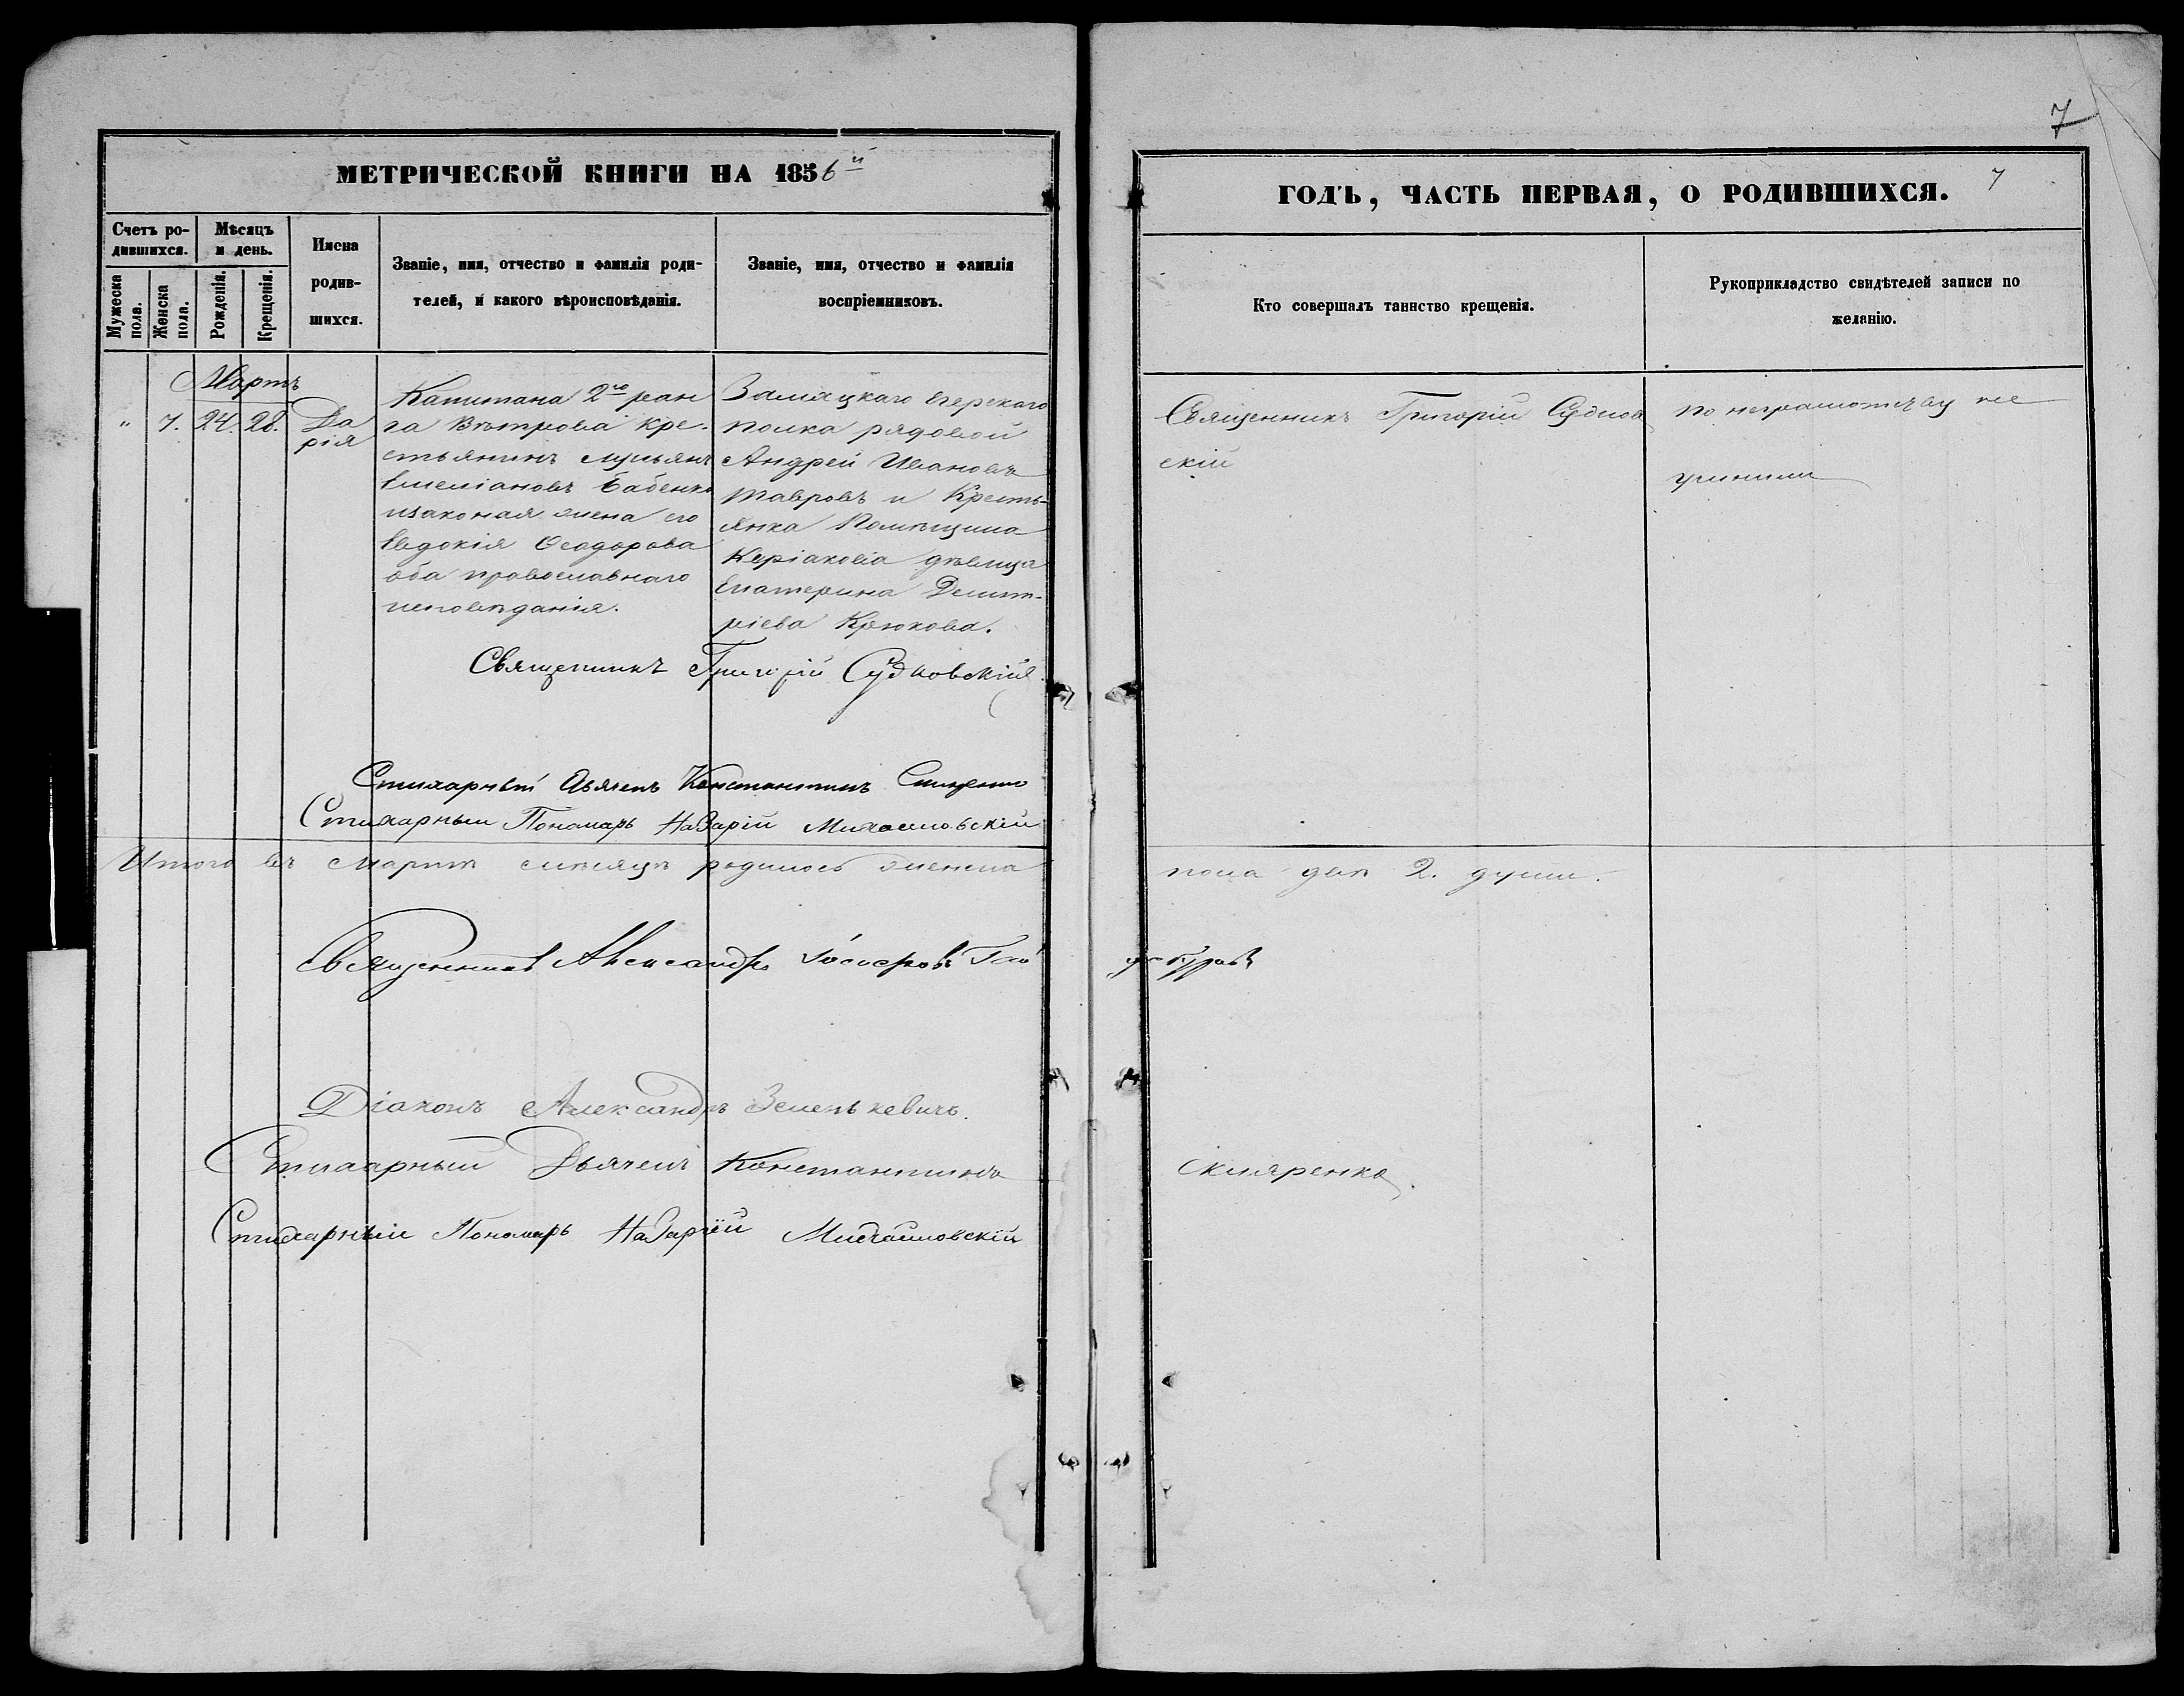 7
МЕТРИЧЕСКОЙ КНИГИ НА 1856й
ГОДЪ, ЧАСТЬ ПЕРВАЯ, О РОДИВШИХСЯ. 7
Счетъ ро-
дившихся.
Мужеска
пола.
Женска
пола.
Мѣсяцъ
и день.
Рожденія.
Крещенія.
Имена
родив-
шихся.
Званіе, имя, отчество и фамилія роди-
телей, и какого вѣроисповѣданія.
Званіе, имя, отчество и фамилія
воспріемниковъ.
Кто совершалъ таинство крещенія.
Рукоприкладство свидѣтелей записи по
желанію.
Мартъ
" 7. 24. 28.
Да
рія
Капитана 2го ран
га Вѣтрова Кре-
стьянинъ
Емеліановъ Бабенко
изаконая жена его
Евдокія Ѳеодорова
оба православнаго
исповѣданія.
Замацкаго Егерскаго
полка рядовой
Андрей Ивановъ
Тавровъ и Кресть-
янка Помѣщика
Керіакова дѣвица
Екатерина Димит-
ріева Крюкова.
Священникъ Григорій Судков
скій
по неграмотству не
учинили
Священникъ Григорій Судковскій
Стихарный Дьячекъ Константинъ
Стихарный Пономарь Назарій Михайловскій
Итого въ Мартѣ мѣсяцѣ родилось женска
пола двѣ 2. души.
Священникъ Александръ
Діаконъ Александръ Зеленькевичъ.
Стихарный Дьячекъ Константинъ
Скляренко.
Стихарный Пономарь Назарій Михайловскій